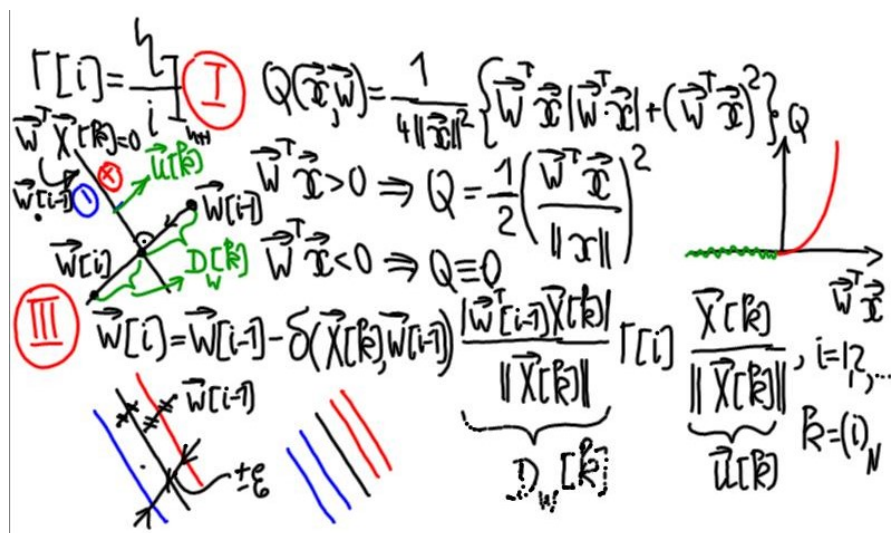 Γ[i] = η/i ]ₙₙₙ Ⓘ Q(x⃗,w⃗) = 1/(4‖x⃗‖²) {w⃗ᵀx⃗|w⃗ᵀx⃗| + (w⃗ᵀx⃗)²}; Q
w⃗ᵀX⃗[k]=0 + u⃗[k]
w⃗[i-1] − w⃗[i-1] w⃗ᵀx⃗>0 ⇒ Q = 1/2 (w⃗ᵀx⃗/‖x‖)²
w⃗[i] D_w[k] w⃗ᵀx⃗<0 ⇒ Q≡0 w⃗ᵀx⃗
III w⃗[i] = w⃗[i-1] − δ(X⃗[k],w⃗[i-1]) |w⃗ᵀ[i-1]X⃗[k]|/‖X⃗[k]‖ Γ[i] X⃗[k]/‖X⃗[k]‖, i=1,2,...
k=(i)_N
w⃗[i-1]
±ε
D_w[k] u⃗[k]